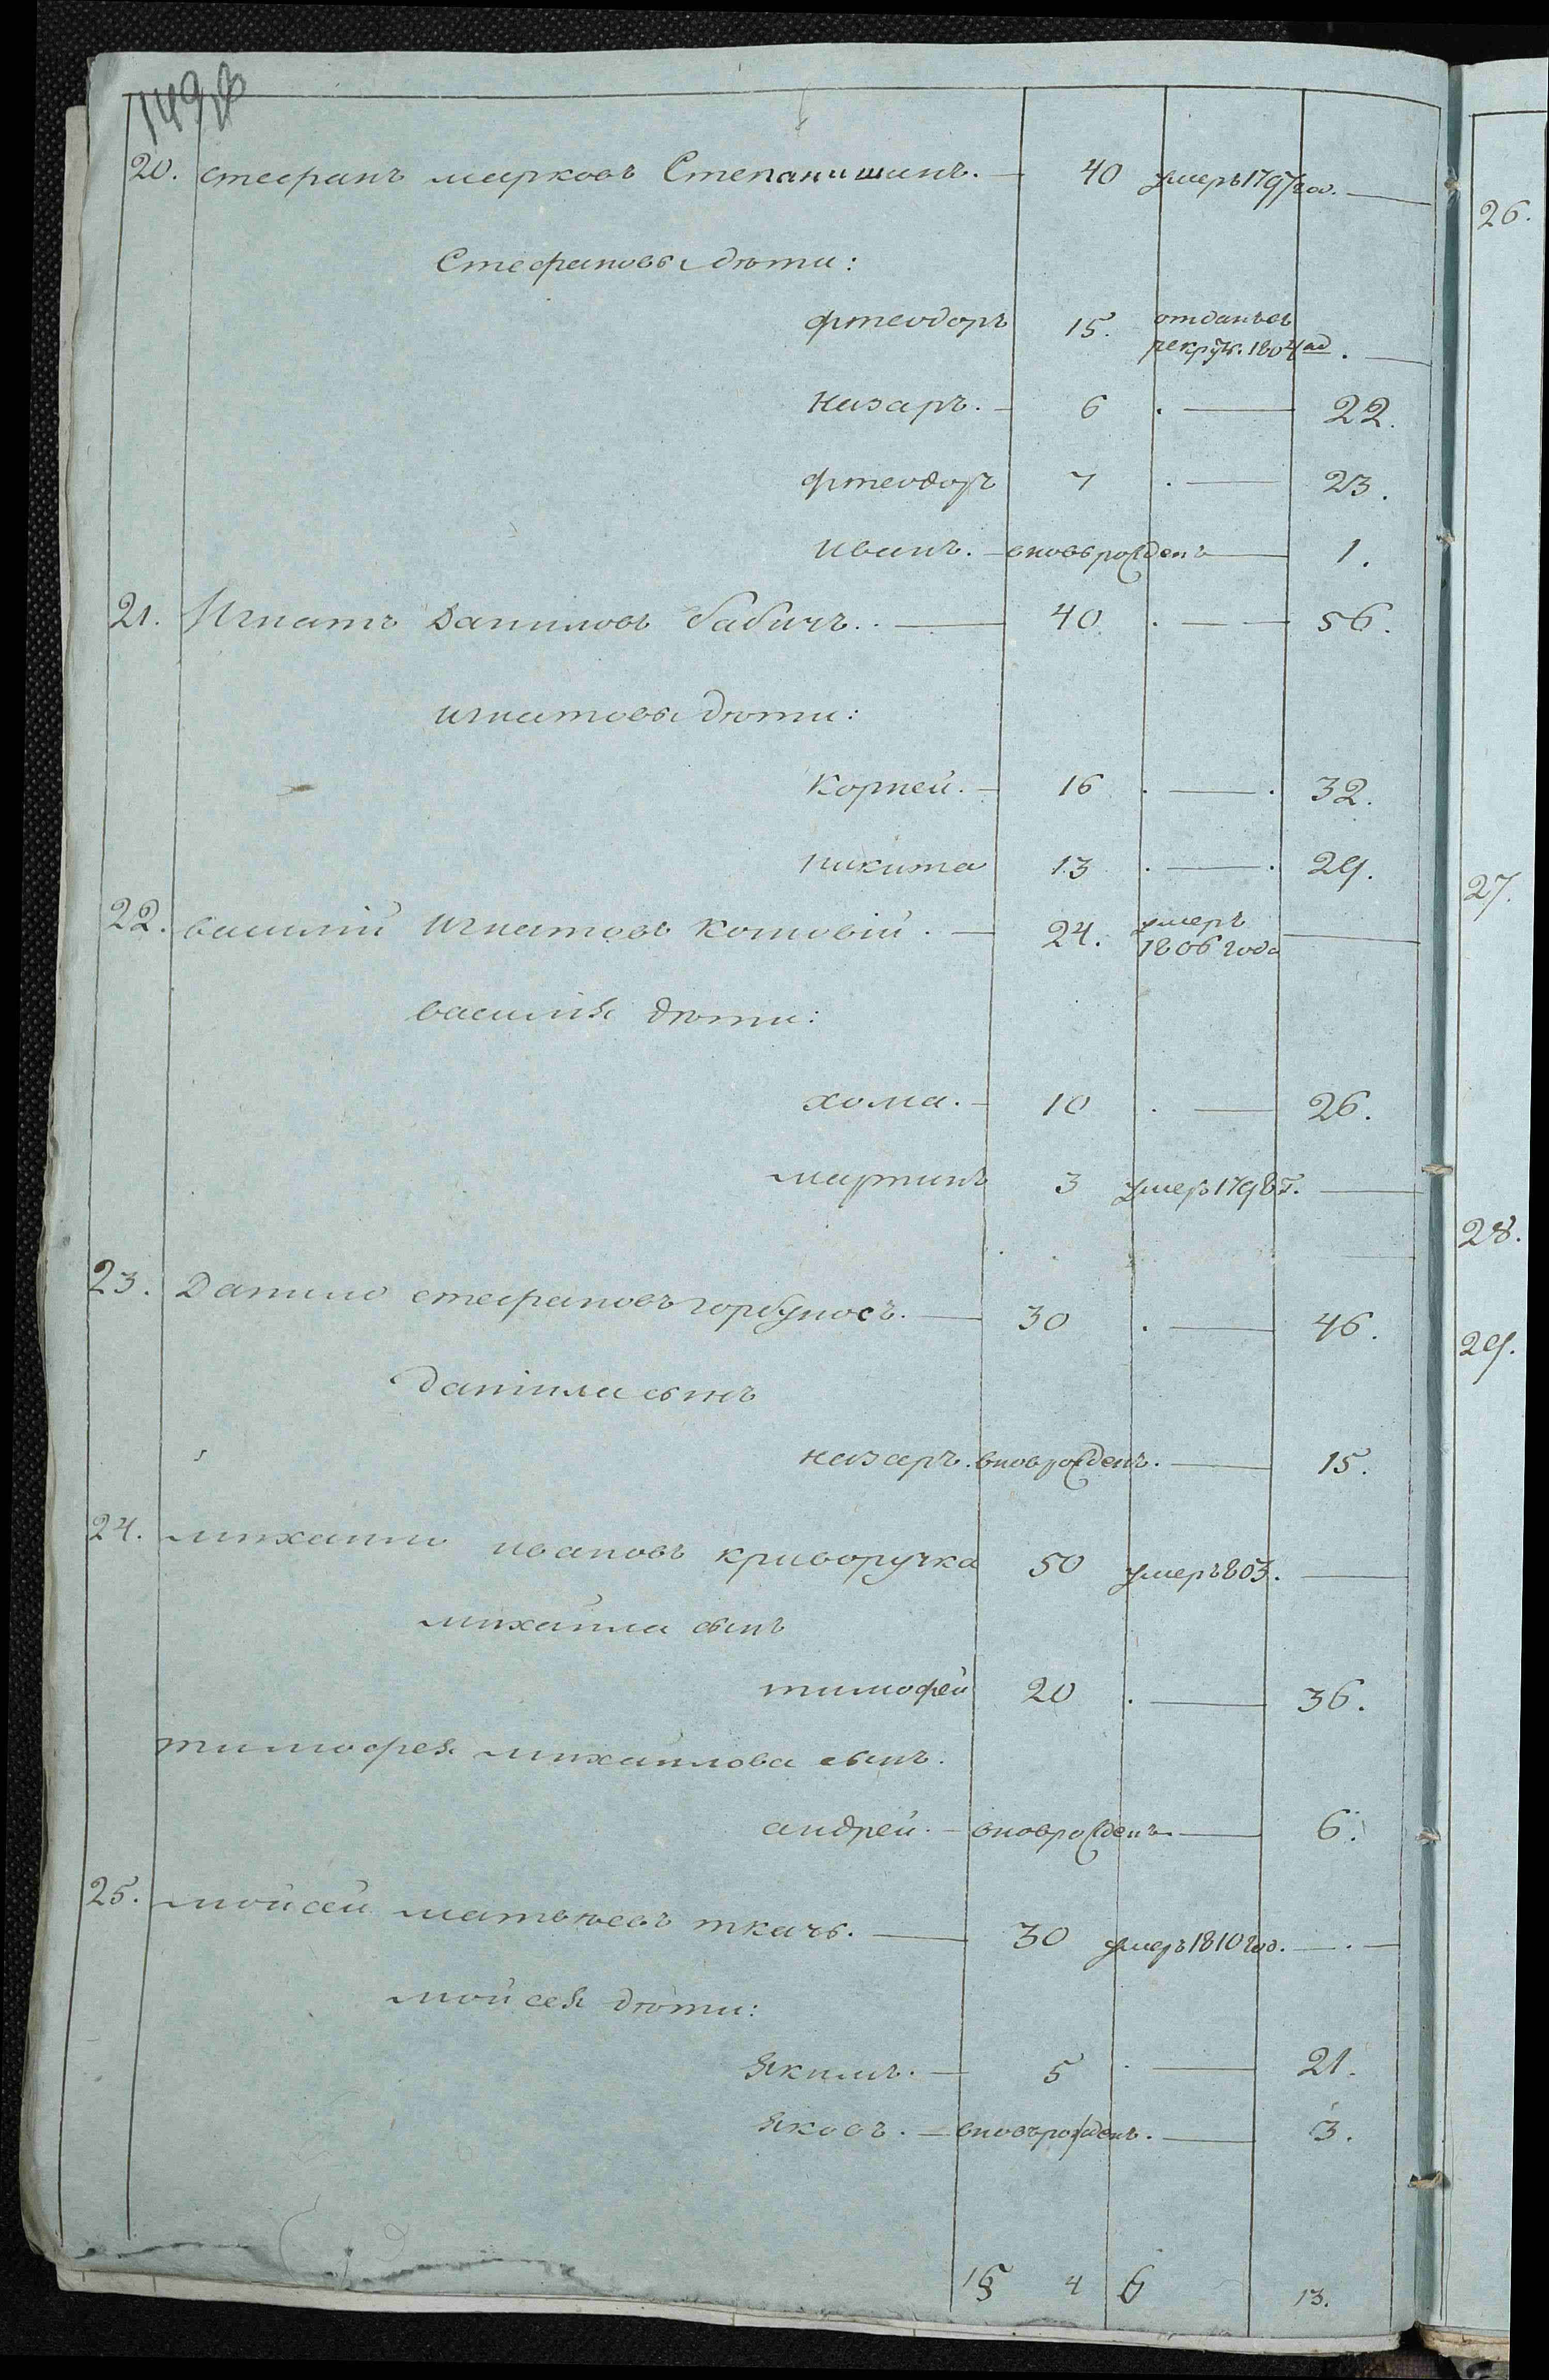 20. стефанъ марковъ Степанишинъ. — 40 умеръ 1797 год. —
Стефановы дѣти:
фтеодоръ 15. отданъ въ
рекрут. 1804 год. —
назаръ. — 6 . — 22.
фтеодоръ 7 . — 23.
иванъ. — вновь рожденъ — 1.
21. Игнатъ Даниловъ бабичъ. — 40. . — 56.
игнатовы дѣти:
Корней. — 16 . — . 32.
никита 13 . — . 29.
22. василій игнатовъ кошовій. — 24. умеръ
1806 года —
василія дѣти:
хома. — 10 . — 26.
мартинъ 3 умеръ 1798 г. —
23. Данило стефановъ горбуносъ. — 30 . — 46.
даніила сынъ
назаръ. внов рожденъ. — 15.
24. михаило ивановъ криворучка 50 умеръ 803. —
михаила сынъ
тимофей 20 . — 36.
тимофея михаилова сынъ.
андрей. — внов рожденъ. — 6.
25. мойсей матвѣевъ ткачъ. — 30 умеръ 1810 год. —
мойсея дѣти:
якимъ. — 5 . — 21.
яковъ. — вновъ рожденъ. — 3.
15 4 6 13.
26.
27.
28.
29.